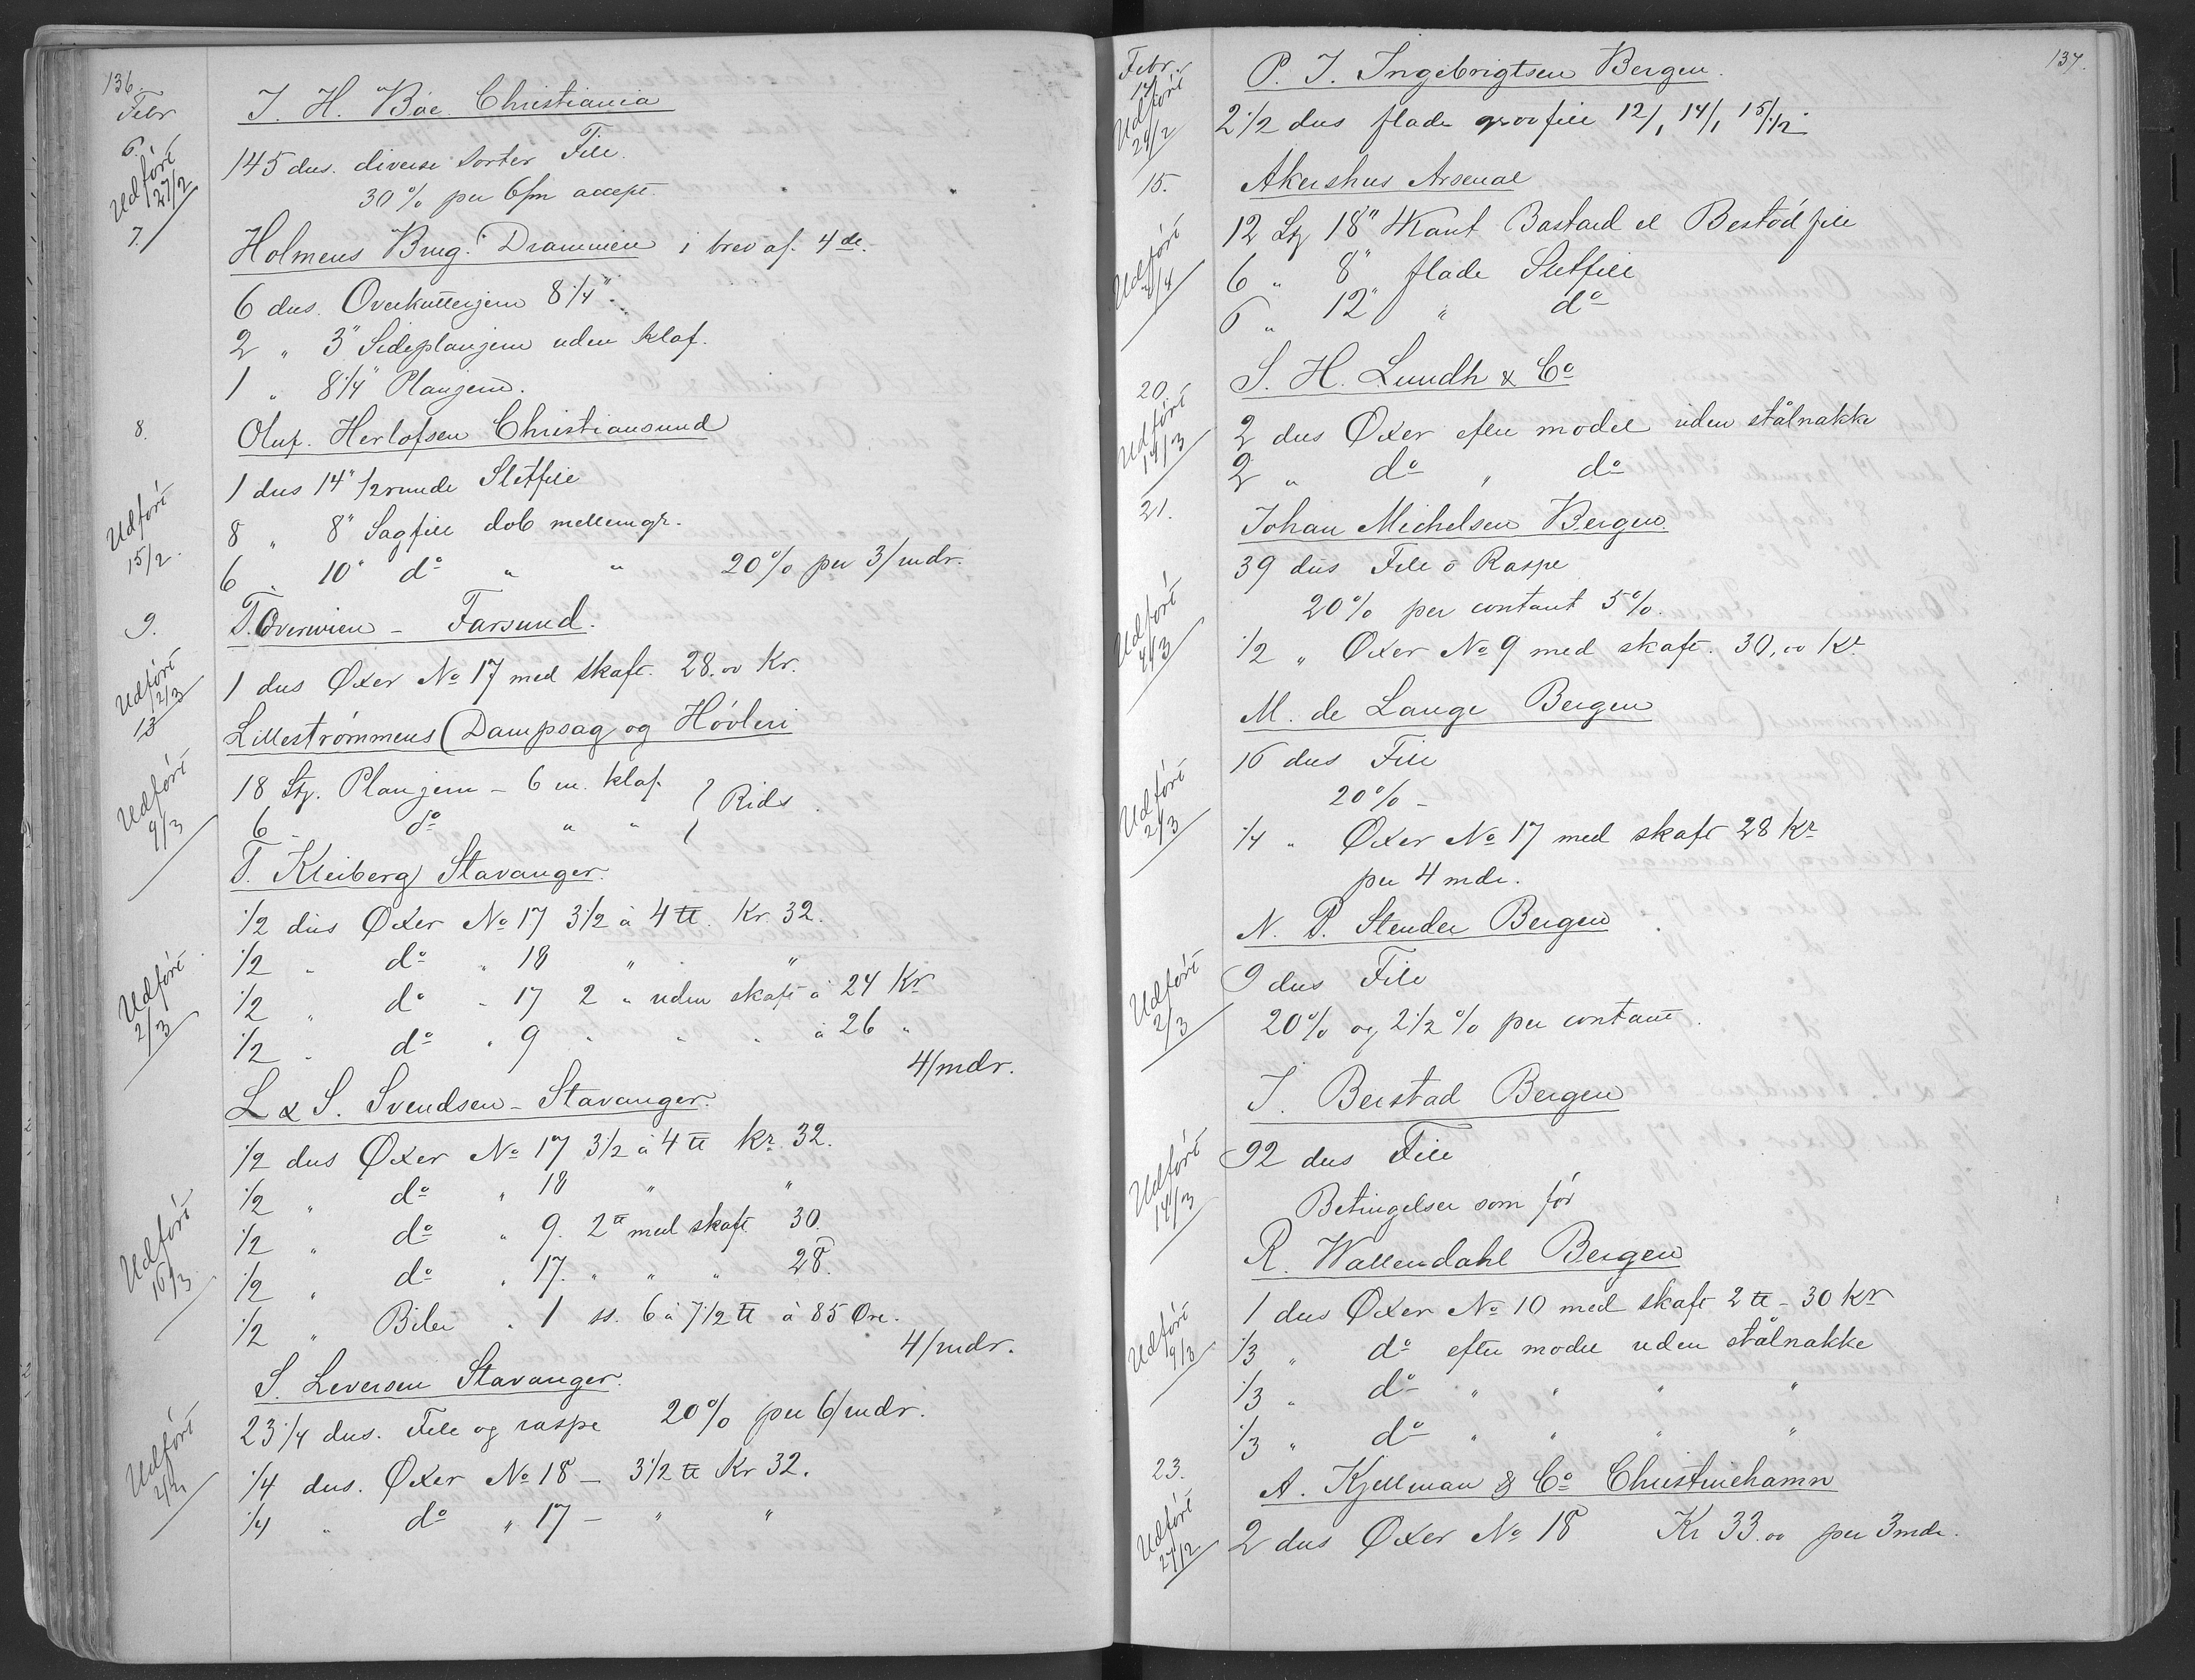 136.
Febr
6.
J. H. Böe Christiania
Udfört 27/2
145 dus. diverse Sorter File.
30 % per 6/m accept.
7.
Holmens Brug. Drammen i brev af. 4 de.
6 dus. Overkutterjern 8 1/4".
2 " 3" Sideplanjern uden klaf.
1 " 8 1/4" Planjern.
8.
Oluf. Herlofsen Christiansund
Udfört 15/2.
1 dus 14" 1/2 runde Sletfile
8 " 8" Sagfile dob mellemgr.
6 " 10" do " " 20 % per 3/mdr.
9.
T. Overwien - Farsund.
Udfört 2/3
13
1 dus Øxer No 17 med Skaft. 28.00 Kr.
Lillestrømmens Dampsag og Høvleri
Udfört 9/3
18 Stg. Planjern - 6 m. klaf. } Rids.
6 - do " "
T. Kleiberg Stavanger.
1/2 dus Øxer No 17 3 1/2 à 4 ℔. Kr. 32.
1/2 " do " 18 " "
Udfört 2/3
1/2 " do " 17 2 " uden skaft à 24 Kr
1/2 " do " 9 " " " à 26 "
4/mdr.
L & S. Svendsen - Stavanger.
1/2 dus Øxer No 17 3 1/2 à 4 ℔ Kr. 32.
1/2 " do " 18 " "
Udfört 16/3
1/2 " do " 9. 2 ℔ med skaft 30.
1/2 " do " 17. " " " 28.
1/2 " Biler " 1 ss. 6 à 7 1/2 ℔ à 85 Øre.
4/mdr.
S. Leversen Stavanger.
Udfört
23 1/4 dus. File og raspe 20 % per 6/mdr.
1/4 dus. Øxer No 18 - 3 1/2 ℔ Kr 32.
1/4 " do " 17 - " "
137.
Febr.
14
P. J. Ingebrigtsen Bergen.
Udfört 29/2
2 1/2 dus flade groofile 12/1 14/1 15/1/2.
15.
Akershus Arsenal
12 Stg 18" 4Kant Bastard el Bestöd file
Udfört 4/4
6 " 8" flade Sletfile
6 " 12" " do
20.
S. H. Lundh & Co
Udfört 14/3
2 dus Øxer efter model uden stålnakke
2 " do " do
21.
Johan Michelsen Bergen.
39 dus File o Raspe
Udfört 4/3
20 % per contant 5 %.
1/2 " Øxer No 9 med skaft. 30,00 Kr
M. de Lange Bergen
16 dus File
Udfört 2/3
20 % -
1/4 " Øxer No 17 med skaft 28 Kr
per 4 mdr.
N. P. Stender Bergen
Udfört 2/3
9 dus File
20 % og 2 1/2 % per contant.
J. Beistad Bergen
Udfört 14/3
92 dus File
Betingelser som før
R. Wallendahl Bergen
Udfört 9/3
1 dus Øxer No 10 med skaft 2 ℔ - 30 Kr
1/3 " do efter model uden stålnakke
1/3 " do " " " "
1/3 " do " " " "
23.
A. Kjellman & Co Christinehamn
Udfört 27/2
2 dus Øxer No 18 Kr 33.00 per 3 mdr.